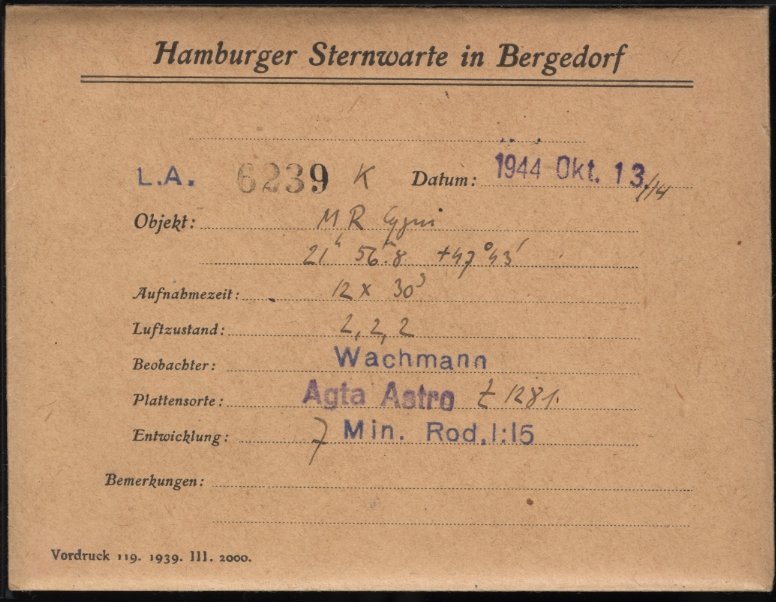 Hamburger Sternwarte in Bergedorf
L.A. 6239 K Datum: 1944 Okt. 13/14
Objekt: MR Cygni
21ʰ 56ᵐ8 +47°43'
Aufnahmezeit: 12 x 30ˢ
Luftzustand: 2, 2, 2
Beobachter: Wachmann
Plattensorte: Agfa Astro Z 1281.
Entwicklung: 7 Min. Rod. 1:15
Bemerkungen:
Vordruck 119. 1939. III. 2000.